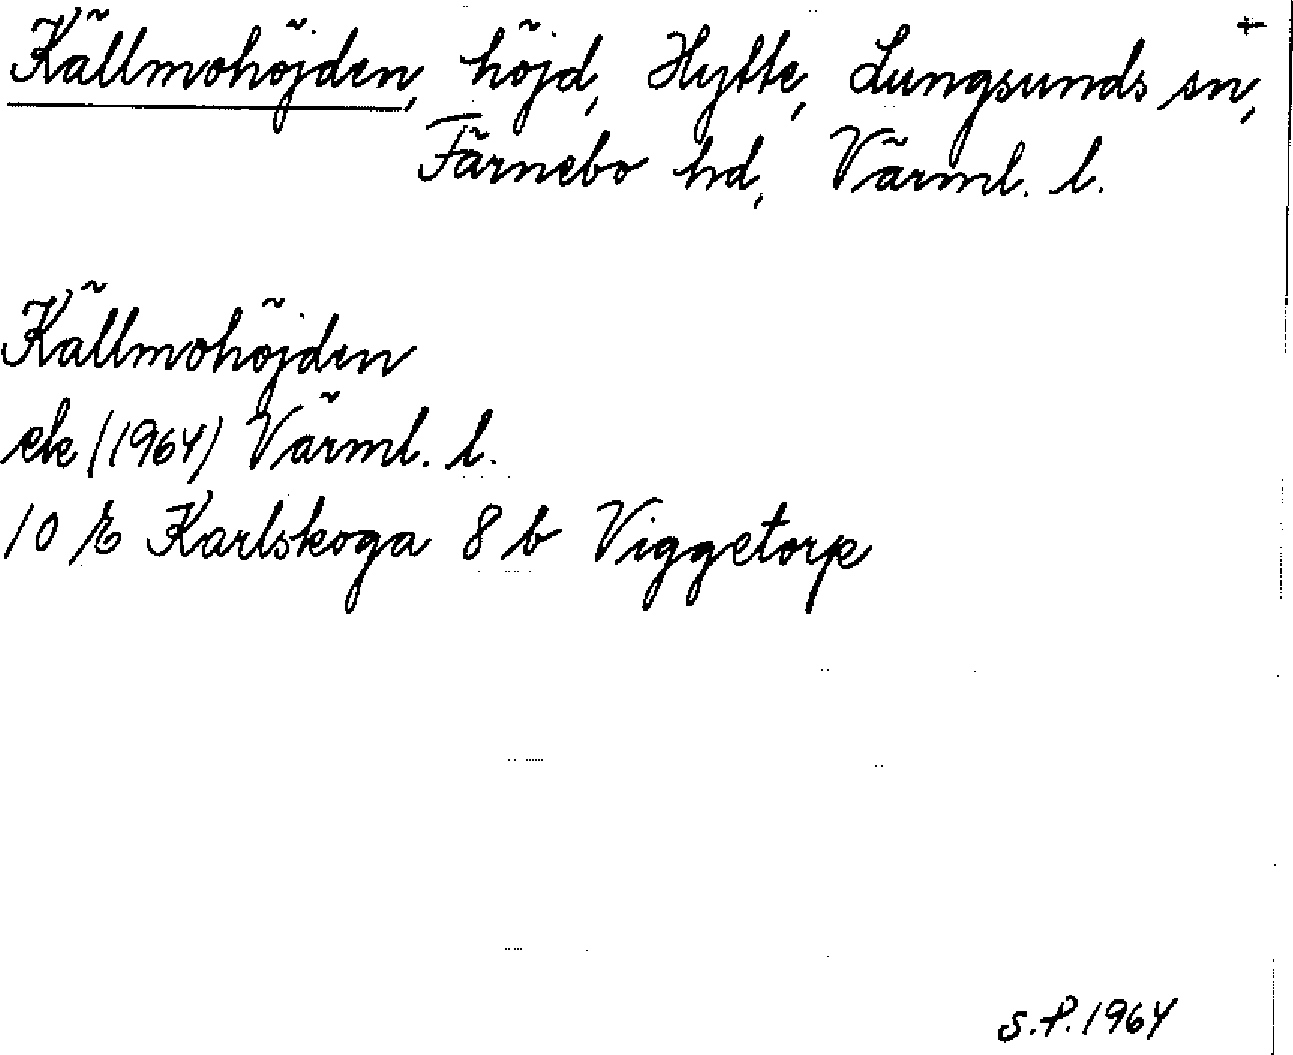 Källmohöjden, höjd, Hytte, Lungsunds sn, +
Färnebo hd, Värml. l.
Källmohöjden
ek (1964) Värml. l.
10 E Karlskoga 8 b Viggetorp
S.P. 1964